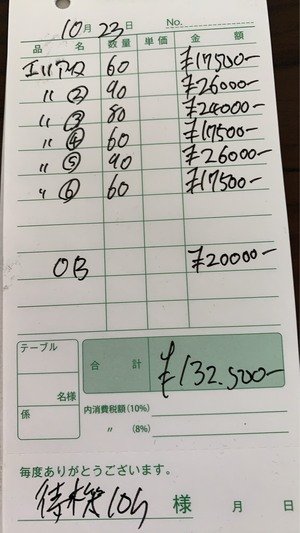 10月23日 No.
品名 数量 単価 金額
60 ¥17500-
〃② 90 ¥26000-
〃③ 80 ¥24000-
〃④ 60 ¥17500-
〃⑤ 90 ¥26000-
〃⑥ 60 ¥17500-
OB ¥20000-
テーブル
合計 ¥132.500-
名様
係
内消費税額(10%)
〃 (8%)
毎度ありがとうございます。
待機10h 様 月 日